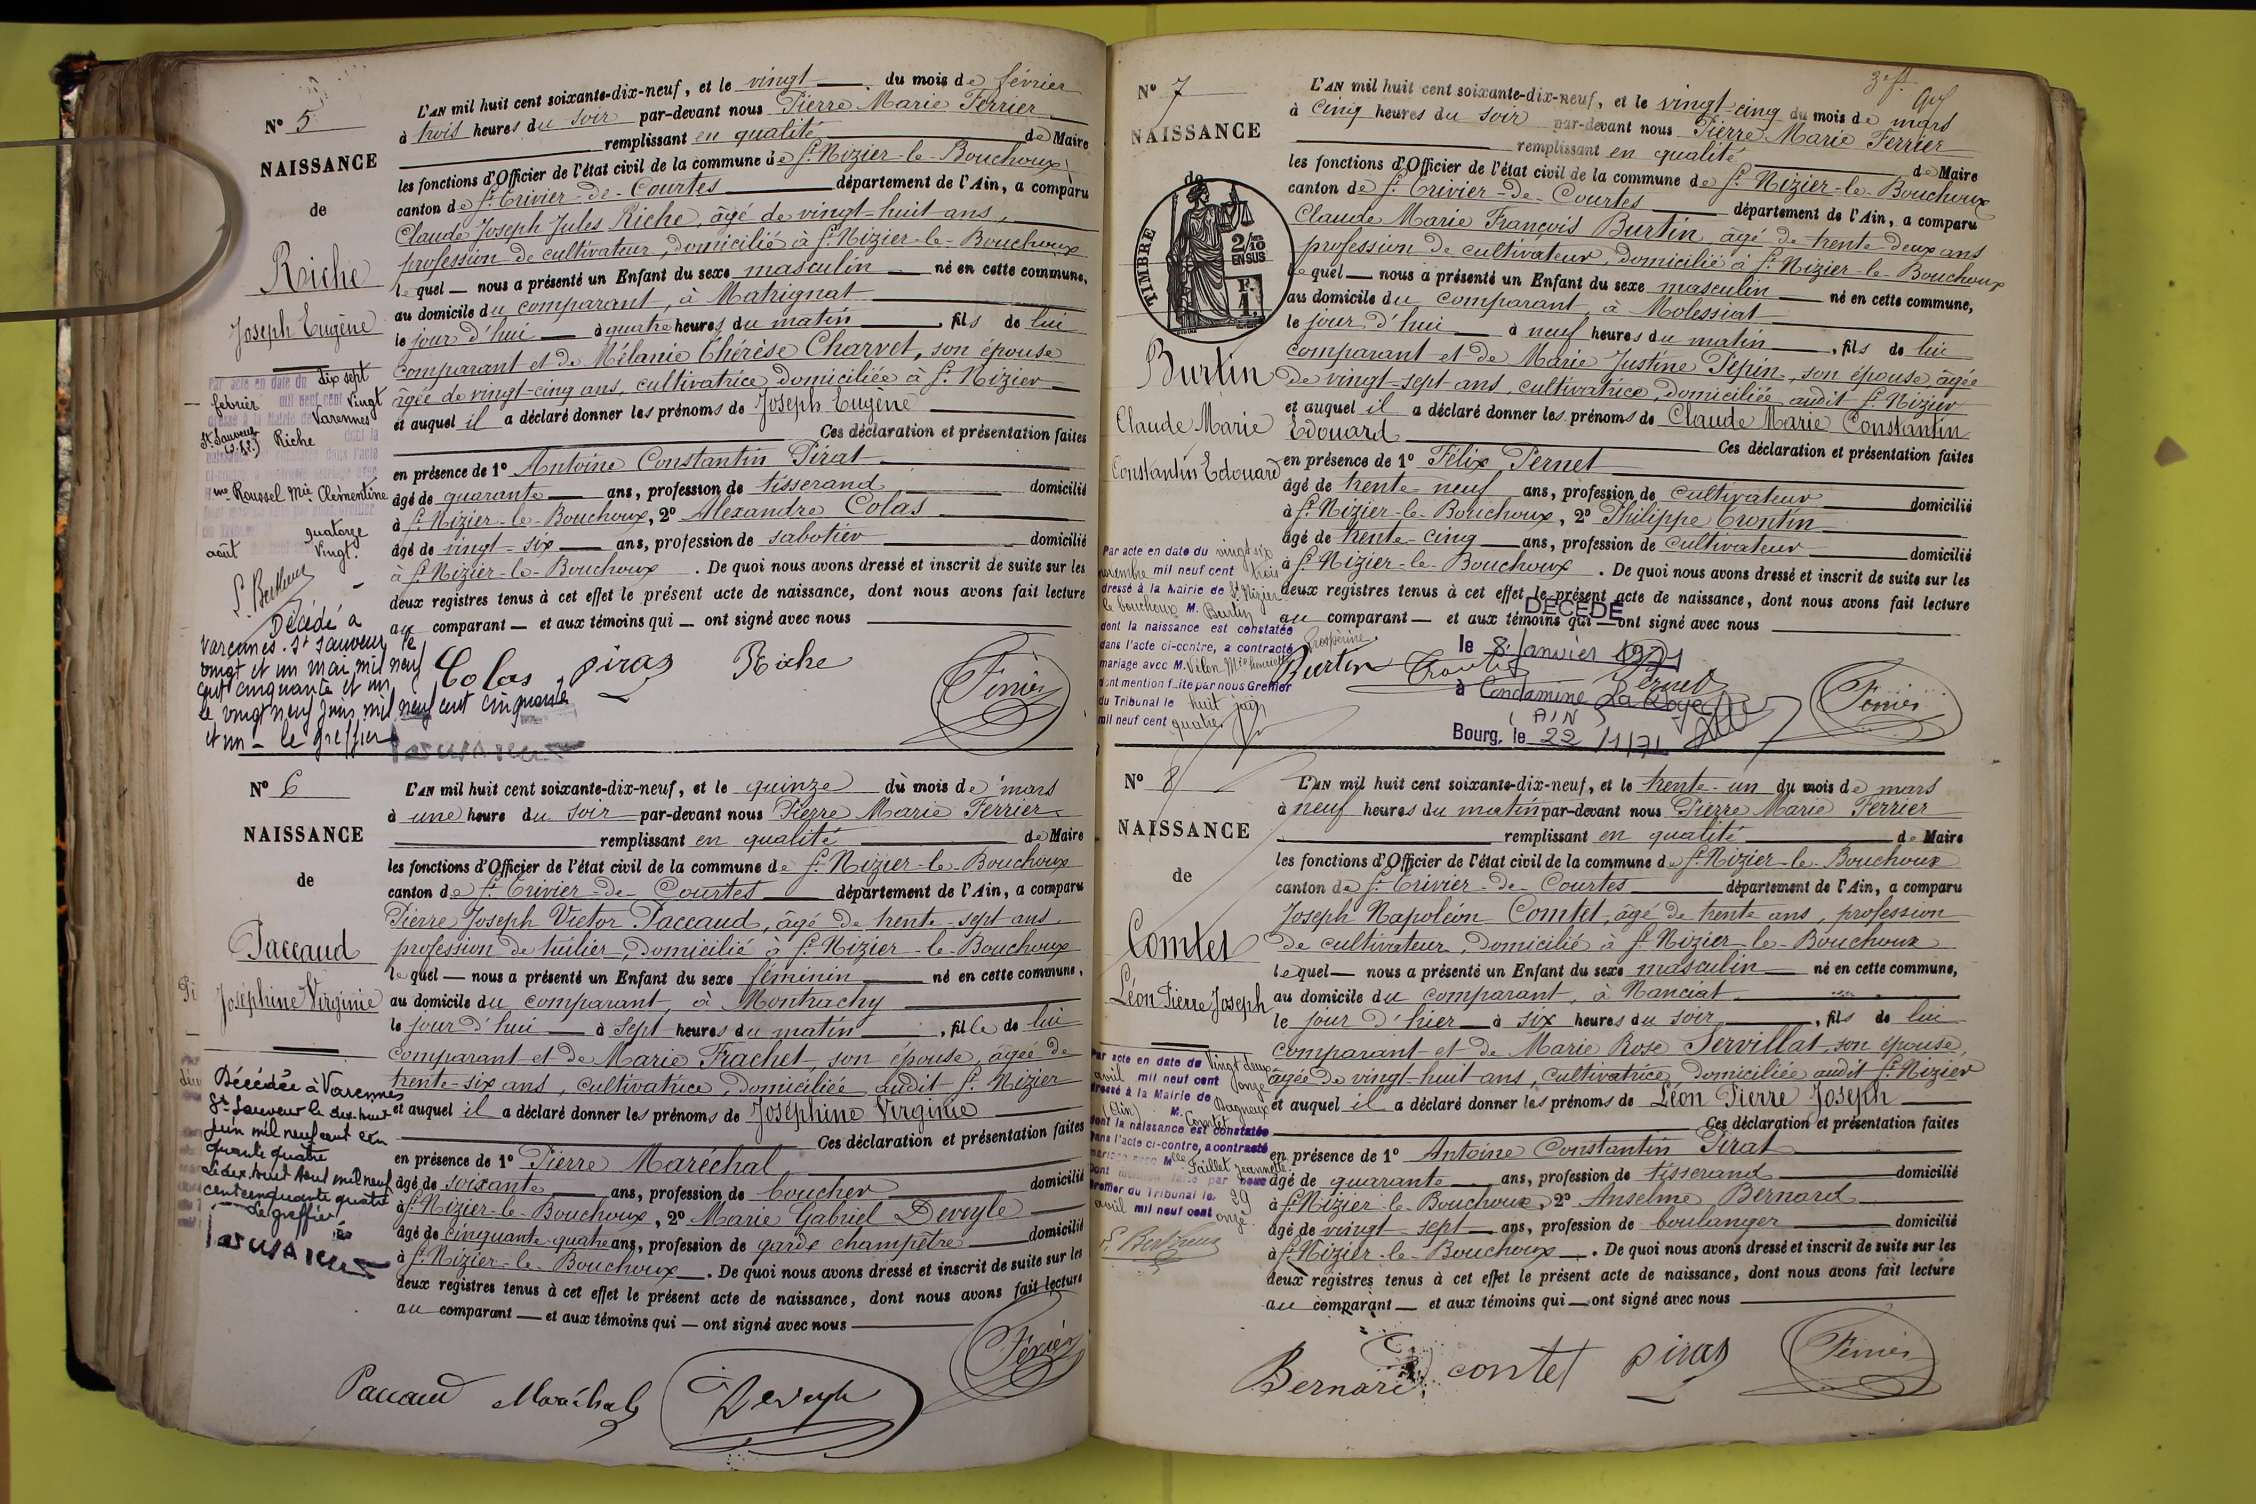 N° 5
NAISSANCE
de
Riche
Joseph Eugène
Par acte en date du dix sept
février mil neuf cent vingt
dressé à la Mairie de Varennes
St Sauveur (S.&L.) Riche dont la
Roussel Mie Clémentine
quatorze
août vingt.
Décédé à
Varennes-St Sauveur le
vingt et un mai mil neuf
cent cinquante et un
le vingt neuf juin mil neuf cent cinquante
et un - le greffier
L'AN mil huit cent soixante-dix-neuf, et le vingt du mois de février
à trois heures du soir par-devant nous Pierre Marie Ferrier
remplissant en qualité de Maire
les fonctions d'Officier de l'état civil de la commune de St Nizier-le-Bouchoux
canton de St Trivier-de-Courtes département de l'Ain, a comparu
Claude Joseph Jules Riche, âgé de vingt-huit ans,
profession de cultivateur, domicilié à St Nizier-le-Bouchoux
lequel nous a présenté un Enfant du sexe masculin né en cette commune,
au domicile du comparant, à Matrignat
le jour d'hui à quatre heures du matin, fils de lui
comparant et de Mélanie Thérèse Charvet, son épouse
âgée de vingt-cinq ans, cultivatrice, domiciliée à St Nizier
et auquel il a déclaré donner les prénoms de Joseph Eugène
Ces déclaration et présentation faites
en présence de 1° Antoine Constantin Pirat
âgé de quarante ans, profession de tisserand domicilié
à St Nizier-le-Bouchoux, 2° Alexandre Colas
âgé de vingt-six ans, profession de sabotier domicilié
à St Nizier-le-Bouchoux. De quoi nous avons dressé et inscrit de suite sur les
deux registres tenus à cet effet le présent acte de naissance, dont nous avons fait lecture
au comparant et aux témoins qui ont signé avec nous
Colas piraz Riche Ferrier
N° 6
NAISSANCE
de
Paccaud
Joséphine Virginie
Décédée à Varennes
St Sauveur le dix-huit
juin mil neuf cent cin
quante quatre
Le dix huit août mil neuf
cent cinquante quatre
Le greffier
L'AN mil huit cent soixante-dix-neuf, et le quinze du mois de mars
à une heure du soir par-devant nous Pierre Marie Ferrier
remplissant en qualité de Maire
les fonctions d'Officier de l'état civil de la commune de St Nizier-le-Bouchoux
canton de St Trivier-de-Courtes département de l'Ain, a comparu
Pierre Joseph Victor Paccaud, âgé de trente-sept ans,
profession de tuilier, domicilié à St Nizier-le-Bouchoux
lequel nous a présenté un Enfant du sexe féminin né en cette commune,
au domicile du comparant, à Montrachy
le jour d'hui à sept heures du matin, fille de lui
comparant et de Marie Frachet, son épouse, âgée de
trente-six ans, cultivatrice, domiciliée audit St Nizier
et auquel il a déclaré donner les prénoms de Joséphine Virginie
Ces déclaration et présentation faites
en présence de 1° Pierre Maréchal,
âgé de soixante ans, profession de boucher domicilié
à St Nizier-le-Bouchoux, 2° Marie Gabriel Deveyle
âgé de cinquante-quatre ans, profession de garde champêtre domicilié
à St Nizier-le-Bouchoux. De quoi nous avons dressé et inscrit de suite sur les
deux registres tenus à cet effet le présent acte de naissance, dont nous avons fait lecture
au comparant et aux témoins qui ont signé avec nous
Paccaud Maréchal Deveyle Ferrier
N° 7
NAISSANCE
de
TIMBRE
2/10 EN SUS
F. 1.
Burtin
Claude Marie
Constantin Edouard
Par acte en date du vingt six
novembre mil neuf cent trois
dressé à la Mairie de St Nizier
le bouchoux M. Burtin
dont la naissance est constatée
dans l'acte ci-contre, a contracté
mariage avec M. Vilon Mie
dont mention faite par nous Greffier
du Tribunal le huit juin
mil neuf cent quatre
L'AN mil huit cent soixante-dix-neuf, et le vingt-cinq du mois de mars
à cinq heures du soir par-devant nous Pierre Marie Ferrier
remplissant en qualité de Maire
les fonctions d'Officier de l'état civil de la commune de St Nizier-le-Bouchoux
canton de St Trivier-de-Courtes département de l'Ain, a comparu
Claude Marie François Burtin, âgé de trente-deux ans
profession de cultivateur, domicilié à St Nizier-le-Bouchoux
lequel nous a présenté un Enfant du sexe masculin né en cette commune,
au domicile du comparant, à Molessiat
le jour d'hui à neuf heures du matin, fils de lui
comparant et de Marie Justine Pépin, son épouse, âgée
de vingt-sept ans, cultivatrice, domiciliée audit St Nizier
et auquel il a déclaré donner les prénoms de Claude Marie Constantin
Edouard Ces déclaration et présentation faites
en présence de 1° Félix Pernet
âgé de trente-neuf ans, profession de cultivateur domicilié
à St Nizier-le-Bouchoux, 2° Philippe Trontin
âgé de trente-cinq ans, profession de cultivateur domicilié
à St Nizier-le-Bouchoux. De quoi nous avons dressé et inscrit de suite sur les
deux registres tenus à cet effet le présent acte de naissance, dont nous avons fait lecture
au comparant et aux témoins qui ont signé avec nous
DÉCÉDÉ
le 8 Janvier 1971
à Condamine La Doye
(AIN)
Bourg, le 22/1/71
Burtin Trontin Pernet Ferrier
N° 8
NAISSANCE
de
Comtet
Léon Pierre Joseph
Par acte en date du vingt deux
avril mil neuf cent onze
dressé à la Mairie de Dagneux
(Ain) M. Comtet
dont la naissance est constatée
dans l'acte ci-contre, a contracté
mariage avec Mlle Paillet Jeannette
dont mention faite par nous
Greffier du Tribunal le 29
avril mil neuf cent onze
L'AN mil huit cent soixante-dix-neuf, et le trente-un du mois de mars
à neuf heures du matin par-devant nous Pierre Marie Ferrier
remplissant en qualité de Maire
les fonctions d'Officier de l'état civil de la commune de St Nizier-le-Bouchoux
canton de St Trivier-de-Courtes département de l'Ain, a comparu
Joseph Napoléon Comtet, âgé de trente ans, profession
de cultivateur, domicilié à St Nizier-le-Bouchoux
lequel nous a présenté un Enfant du sexe masculin né en cette commune,
au domicile du comparant, à Nanciat
le jour d'hier à six heures du soir, fils de lui
comparant et de Marie Rose Servillat, son épouse,
âgée de vingt-huit ans, cultivatrice, domiciliée audit St Nizier
et auquel il a déclaré donner les prénoms de Léon Pierre Joseph
Ces déclaration et présentation faites
en présence de 1° Antoine Constantin Pirat
âgé de quarante ans, profession de tisserand domicilié
à St Nizier-le-Bouchoux, 2° Anselme Bernard
âgé de vingt-sept ans, profession de boulanger domicilié
à St Nizier-le-Bouchoux. De quoi nous avons dressé et inscrit de suite sur les
deux registres tenus à cet effet le présent acte de naissance, dont nous avons fait lecture
au comparant et aux témoins qui ont signé avec nous
Bernard contet piraz Ferrier